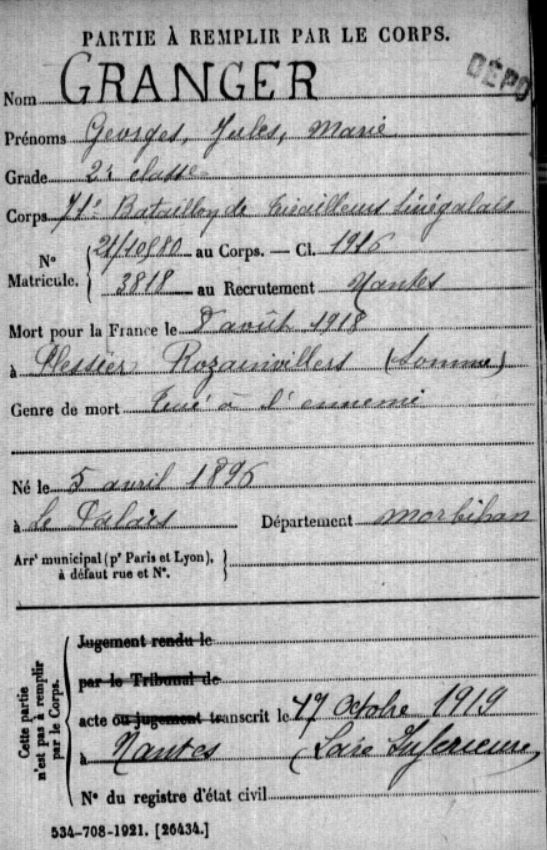 PARTIE À REMPLIR PAR LE CORPS.
DÉPO
Nom GRANGER
Prénoms Georges, Jules, Marie
Grade 2e classe
Corps 71e Bataillon de tirailleurs sénégalais
N° Matricule. { 21/10980 au Corps. — Cl. 1916
3818 au Recrutement Nantes
Mort pour la France le 8 août 1918
à Plessier Rozainvillers (Somme)
Genre de mort Tué à l'ennemi
Né le 5 avril 1896
à Le Palais Département Morbihan
Arrt municipal (pr Paris et Lyon), }
à défaut rue et N°.
Cette partie n'est pas à remplir par le Corps.
Jugement rendu le
par le Tribunal de
acte ou jugement transcrit le 17 Octobre 1919
à Nantes (Loire Inférieure)
N° du registre d'état civil
534-708-1921. [26434.]